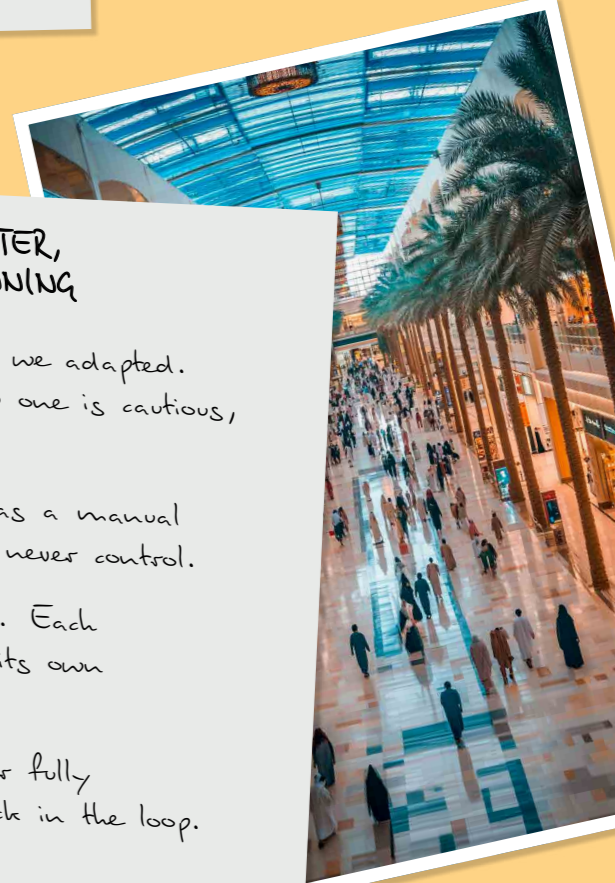 TER,
NING
we adapted.
one is cautious,
as a manual
never control.
. Each
its own
r fully
ck in the loop.